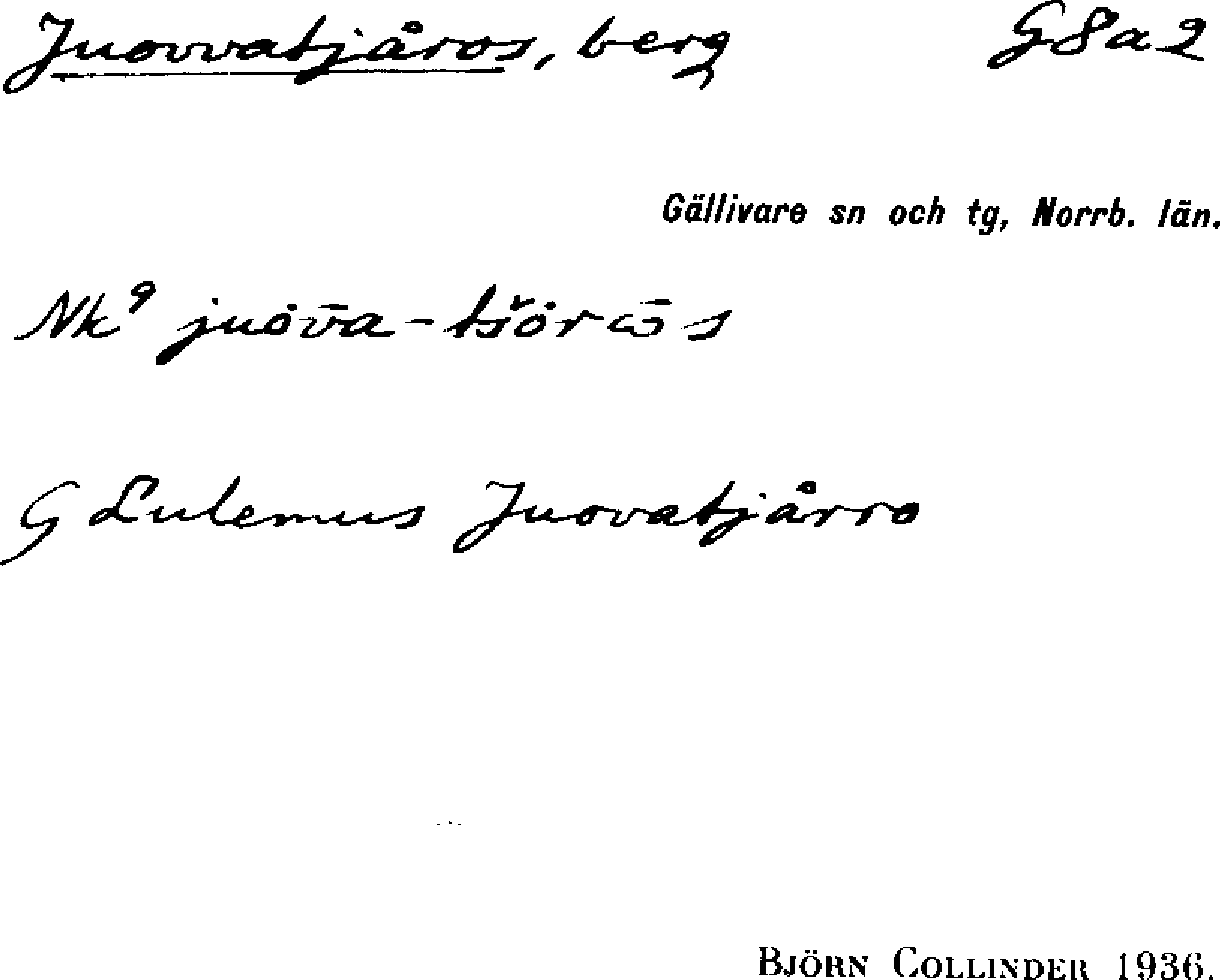 Juovvatjåros, berg G8a2
Gällivare sn och tg, Norrb. län.
Nk⁹ juȯv̄a-tšȯrω̄s
G Lulemus Juovatjårro
BJÖRN COLLINDER 1936.